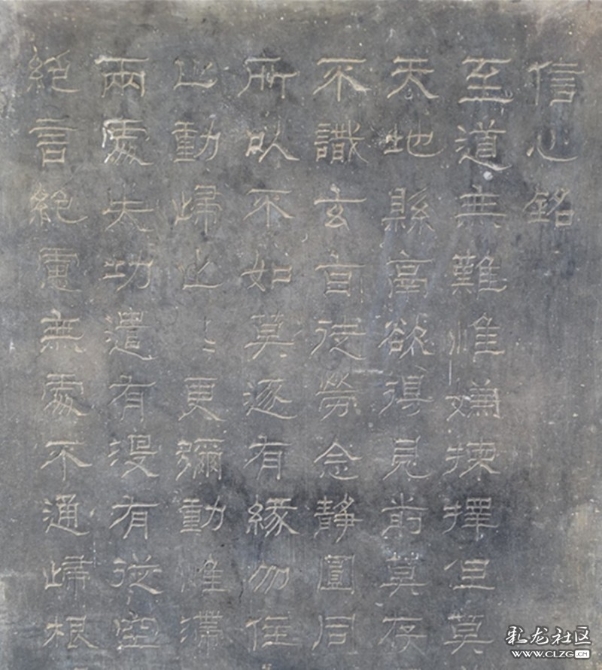 信心銘
至道無難惟嫌揀擇但莫
天地縣鬲欲得見前莫存
不識玄旨徒勞念靜圓同
所以不如莫逐有緣勿住
止動歸止〻更彌動唯滯
兩處失功遣有沒有從空
絕言絕慮無處不通歸根
彩龙社区
WWW.CLZG.CN